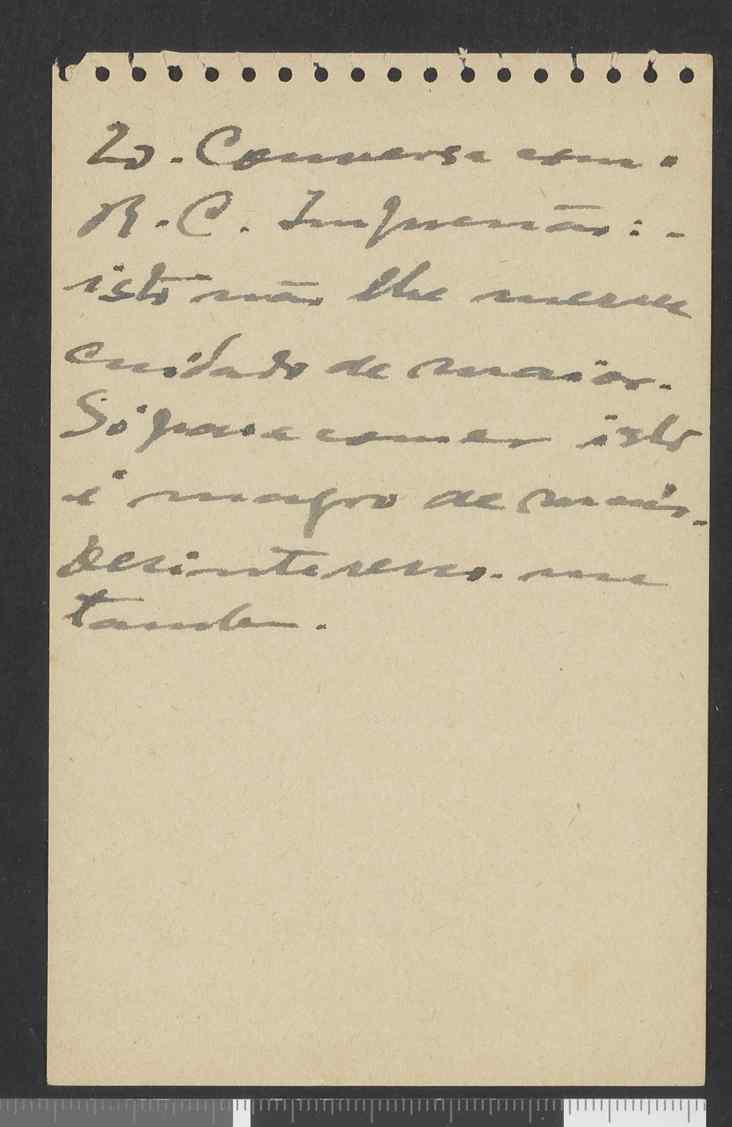 20. Conversa com.
R. C. Impressão: -
isto não lhe merece
cuidado de maior.
Só para comer isto
é magro de mais.
Desinteresso-me
tambem.